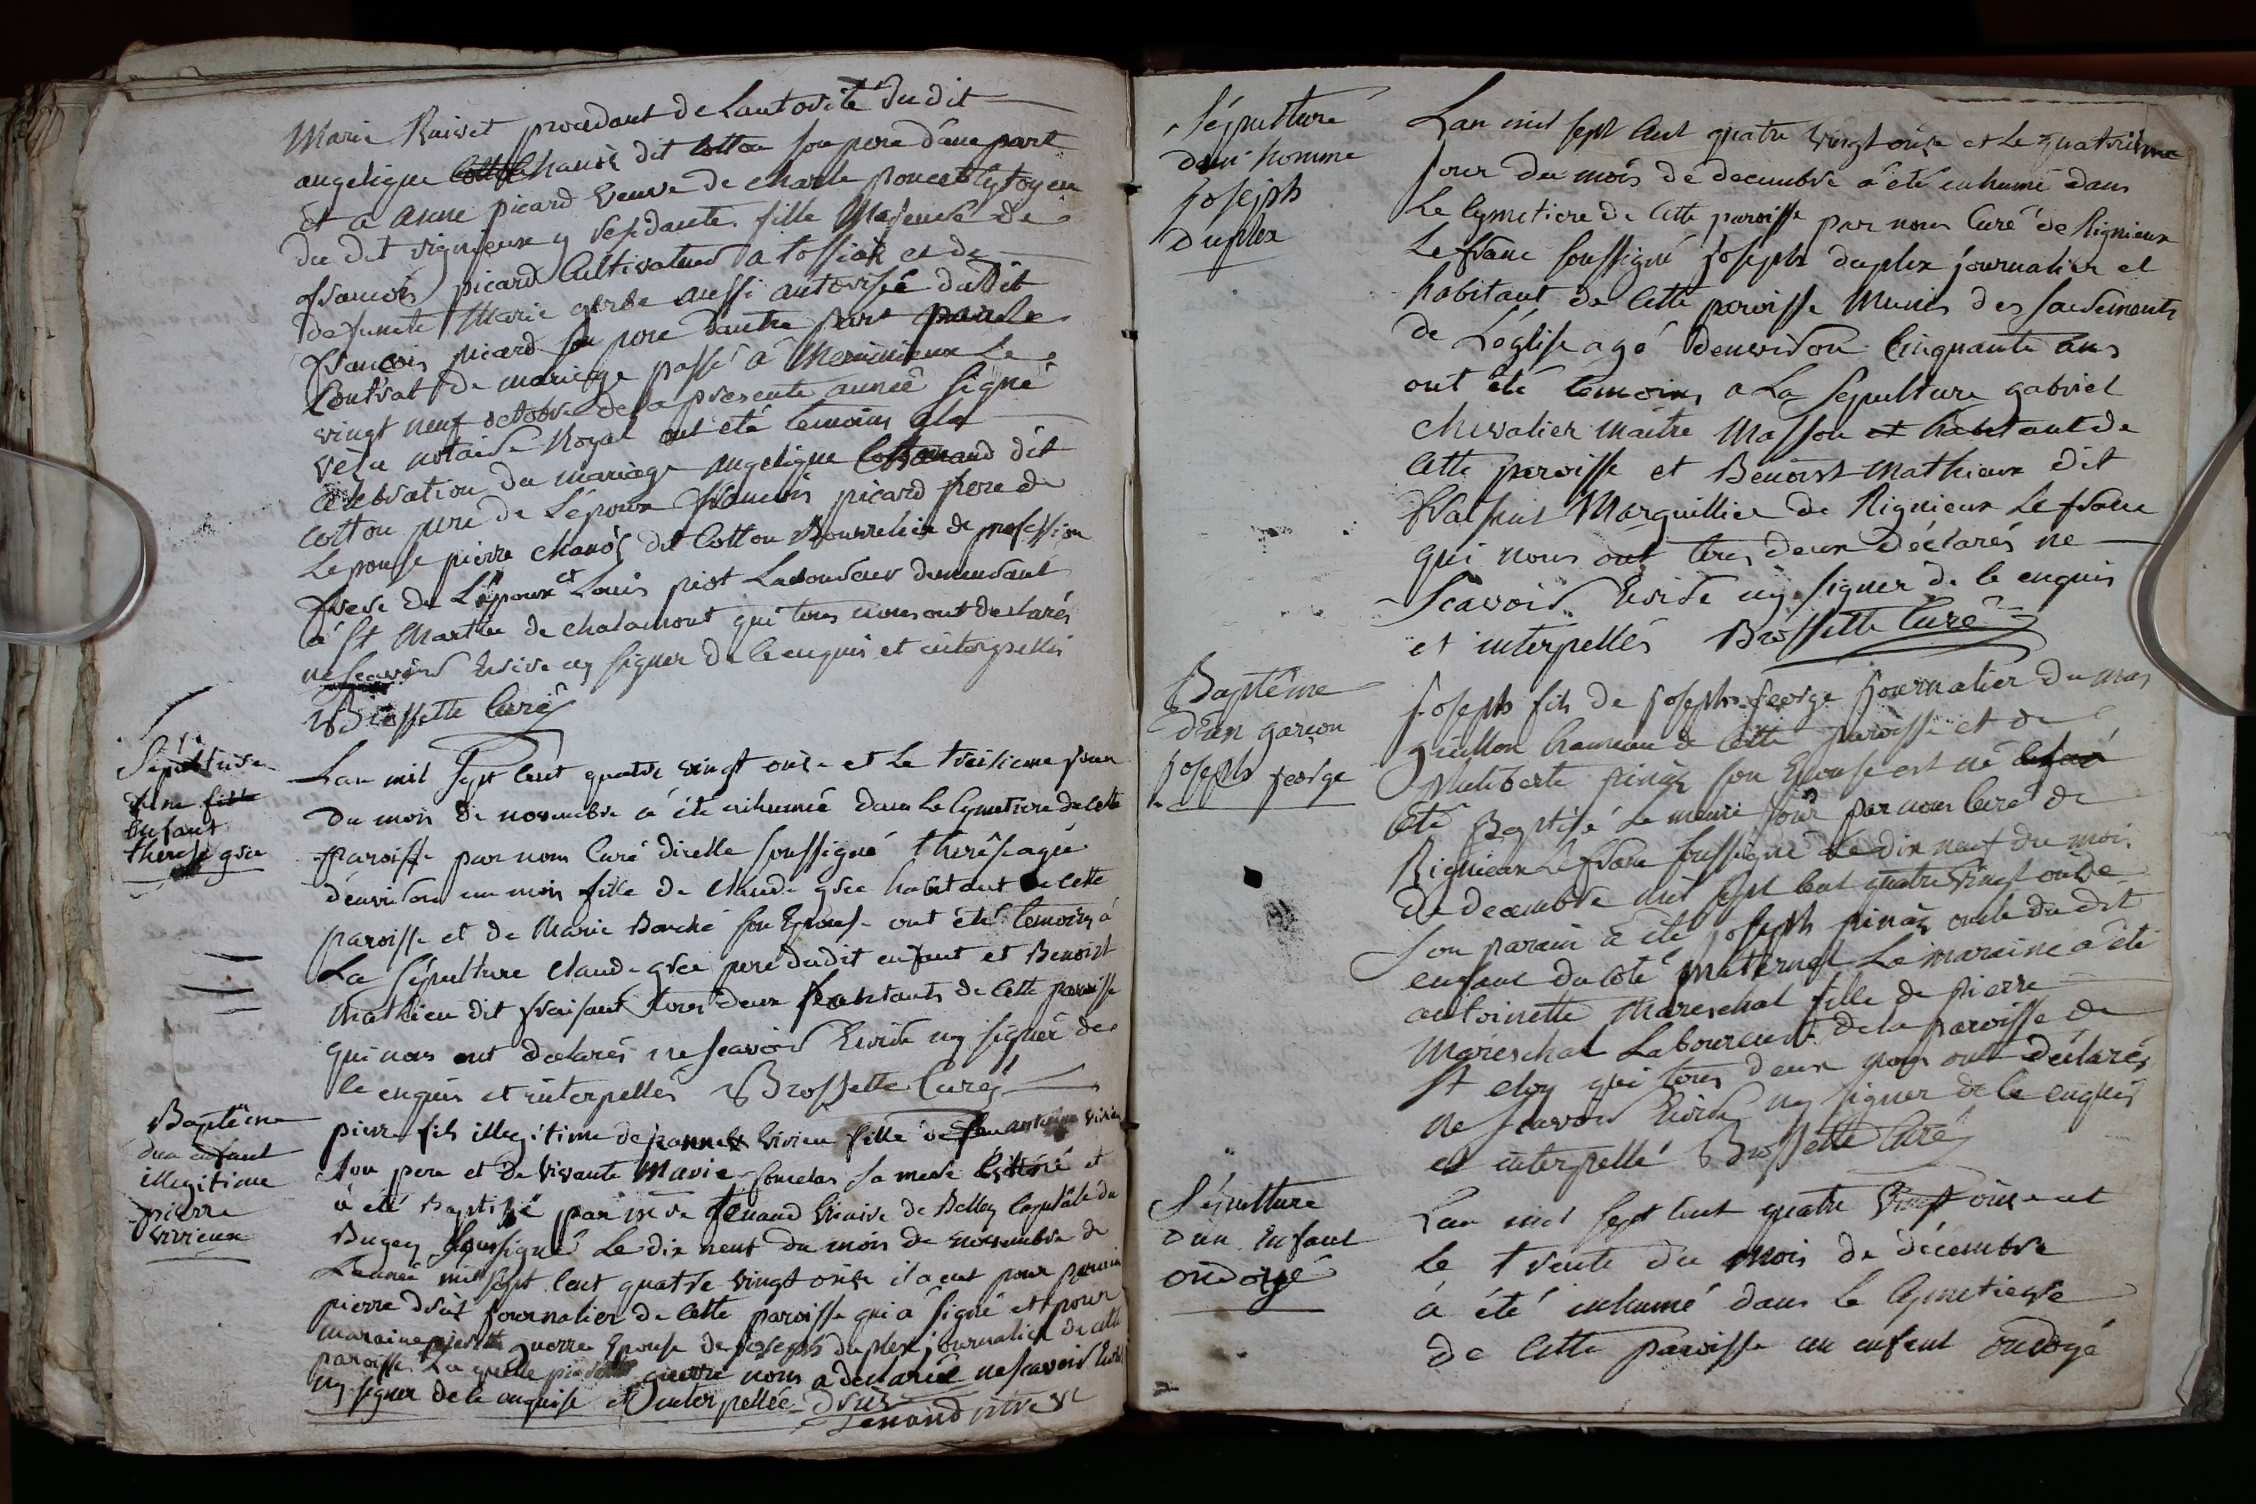 Marie Ruivet procedant de Lautorité du dit
angelique chanés dit Cotton son pere d'une part
et a anne picard veuve de charle poncet Cytoyen
du dit rignieux y residante fille Majeure de
francois picard Cultivateur a tossiat et de
defuncte Marie gerbe aussi autorisée du dit
francois picard son pere d'autre part
Contrat de mariage passé à Meximieux Le
vingt neuf octobre de la presente année signé
notaire Royal ont été temoins a la
Celebration du mariage angelique dit
Cotton pere de L'epoux francois picard pere de
L'epouse pierre chanés dit Cotton Bourrelier de profession
frere de L'epoux et Louis piot Laboureur demeurant
à St Martin de chalamont qui tous nous ont declarés
ne scavoir Ecrire ny signer de ce enquis et interpellés
Brossette Curé
Sépulture
d'une fille
enfant
therese gree
Lan mil sept cent quatre vingt onze et Le treisieme jour
du mois de novembre à été inhumée dans Le Cymetiere de cette
paroisse par nous Curé d'icelle soussigné thérese agée
d'environ un mois fille de Claude gree habitant de cette
paroisse et de Marie Barché son Epouse ont été temoins à
La Sépulture Claude gree pere dudit enfant et Benoist
Mathieu dit fraisant tous deux habitants de Cette paroisse
qui nous ont declarés ne scavoir Ecrire ny signer de
ce enquis et interpellés Brossette Curé
Baptême
d'un enfant
illegitime
pierre
vivieux
pierre fils illegitime de vivien fille de feu antoine vivien
son pere et de vivante Marie sa mere et
à été Baptisé par me tenand vicaire de Belley Capitale du
Bugey soussigné Le dix neuf du mois de novembre de
L'année mil sept cent quatre vingt onze il a eut pour parain
pierre druis journalier de cette paroisse qui à signé et pour
maraine guerre Epouse de joseph duplex journalier de cette
paroisse La quelle guerre nous a declarée ne scavoir
ny signer de ce enquise et interpellée druis
tenand
Sépulture
d'un homme
joseph
duplex
Lan mil sept cent quatre vingt onze et Le quatrieme
jour du mois de decembre à été inhumé dans
Le Cymetiere de cette paroisse par nous Curé de Rignieux
Le franc soussigné joseph duplex journalier et
habitant de cette paroisse Munis des sacrements
de L'église agé d'environ Cinquante ans
ont été temoins a La Sepulture gabriel
chevalier maitre Masson et habitant de
Cette paroisse et Benoist Mathieux dit
Marguillier de Rignieux Le franc
qui nous ont tous deux déclarés ne
Scavoir Ecrire ny signer de ce enquis
et interpellés Brossette Curé
Baptême
d'un garcon
joseph feorge
joseph fils de joseph feorge journalier du mas
guillon hameau de Cette paroisse et de
philiberte pinás son Epouse est né
été Baptisé Le meme jour par nous Curé de
Rignieux Le franc soussigné Le dix neuf du mois
de decembre mil sept cent quatre vingt onze
son parain à été joseph pinás oncle du dit
enfant du coté maternel La maraine à été
antoinette Mareschal fille de pierre
Mareschal Laboureur de la paroisse de
St eloy qui tous deux nous ont déclarés
ne scavoir Ecrire ny signer de ce enquis
et interpellé Brossette Curé
Sépulture
d'un Enfant
ondoyé
Lan mil sept cent quatre vingt onze et
le trente du mois de décembre
à été inhumé dans le Cymetierre
de Cette paroisse un enfant ondoyé